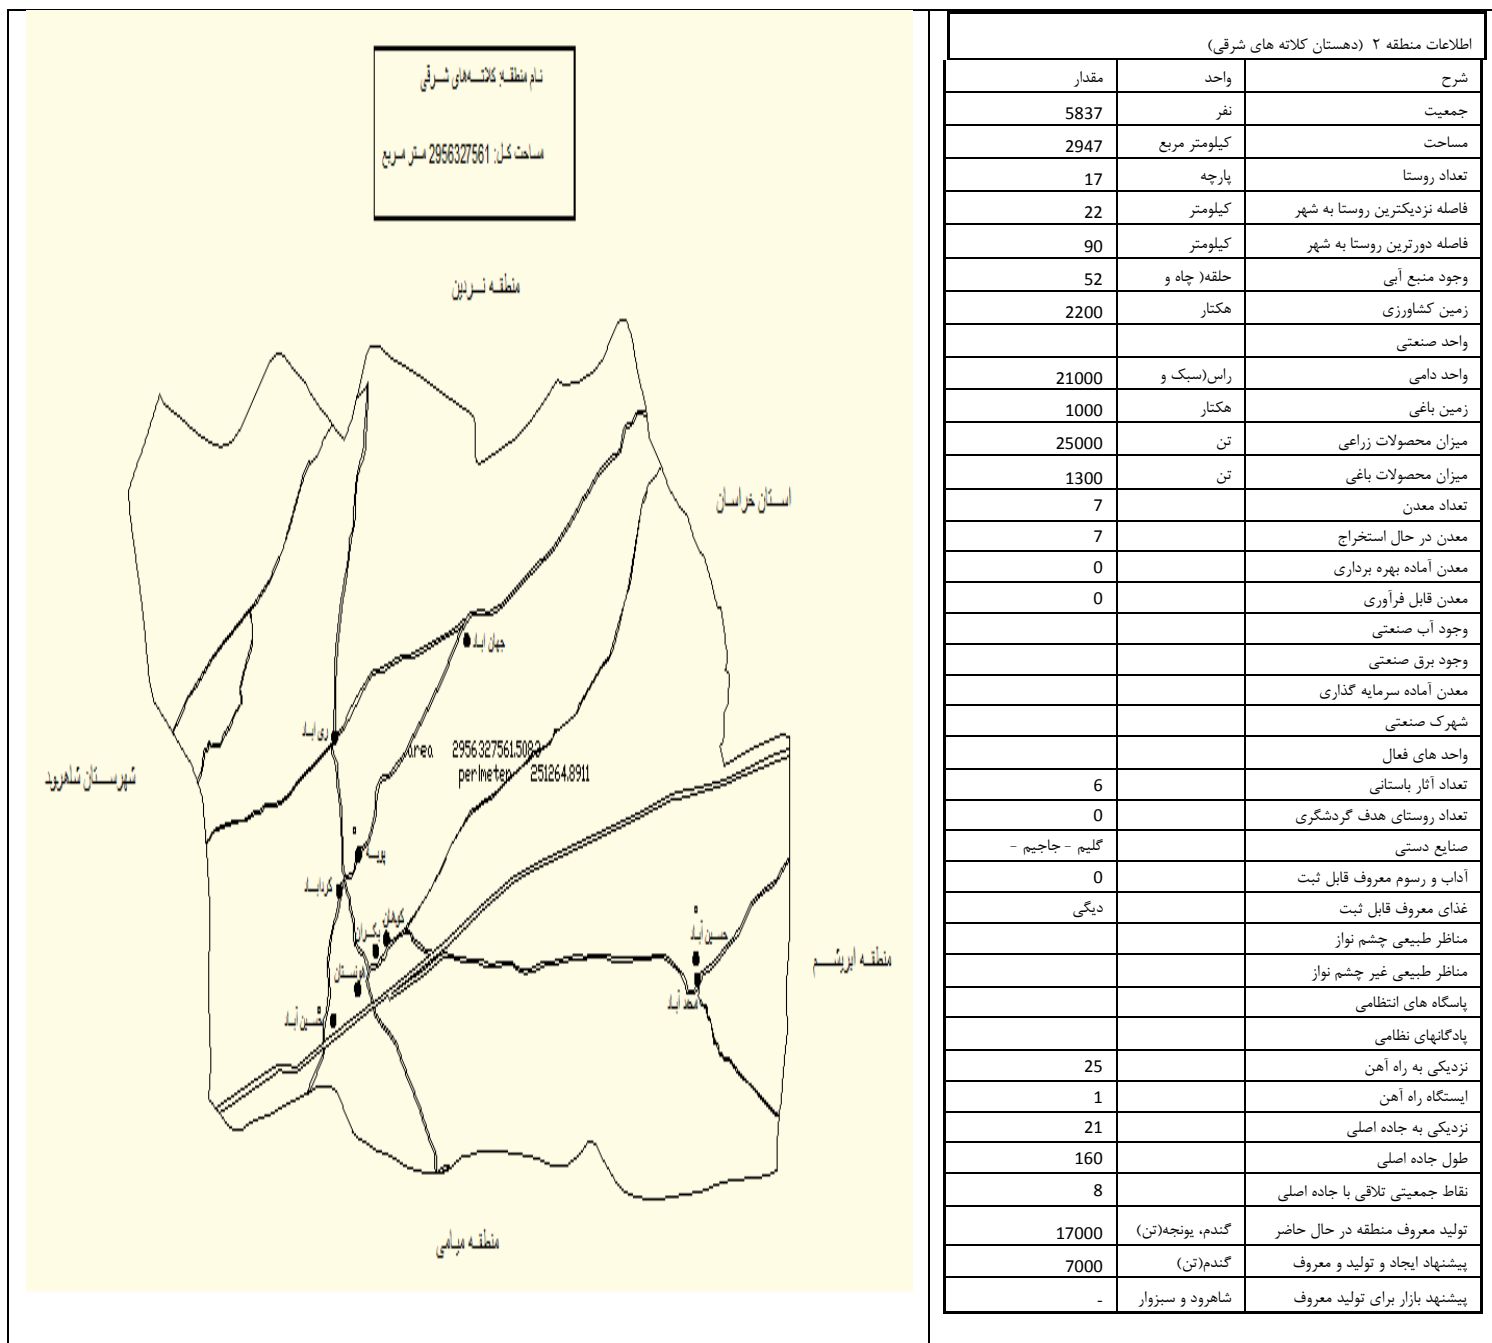 نام منطقه: کلاتــه‌های شــرقی
مساحت کـل: 2956327561 متر مـربع
منطقـه نـــردین
اســتان خراســان
جهان ابـاد
ری ابـاد
area 2956327561.5083
perimeter 251264.8911
شهرســـتان شاهرود
پویـــه
کردابــاد
کوهان
بکــران
حسـین آبـاد
محمد آبـاد
منطقـه ابریشـــم
حسـین آبـاد
منطقـه میـامی
اطلاعات منطقه ۲ (دهستان کلاته های شرقی)
شرح واحد مقدار
جمعیت نفر 5837
مساحت کیلومتر مربع 2947
تعداد روستا پارچه 17
فاصله نزدیکترین روستا به شهر کیلومتر 22
فاصله دورترین روستا به شهر کیلومتر 90
وجود منبع آبی حلقه( چاه و 52
زمین کشاورزی هکتار 2200
واحد صنعتی
واحد دامی راس(سبک و 21000
زمین باغی هکتار 1000
میزان محصولات زراعی تن 25000
میزان محصولات باغی تن 1300
تعداد معدن 7
معدن در حال استخراج 7
معدن آماده بهره برداری 0
معدن قابل فرآوری 0
وجود آب صنعتی
وجود برق صنعتی
معدن آماده سرمایه گذاری
شهرک صنعتی
واحد های فعال
تعداد آثار باستانی 6
تعداد روستای هدف گردشگری 0
صنایع دستی گلیم - جاجیم -
آداب و رسوم معروف قابل ثبت 0
غذای معروف قابل ثبت دیگی
مناظر طبیعی چشم نواز
مناظر طبیعی غیر چشم نواز
پاسگاه های انتظامی
پادگانهای نظامی
نزدیکی به راه آهن 25
ایستگاه راه آهن 1
نزدیکی به جاده اصلی 21
طول جاده اصلی 160
نقاط جمعیتی تلاقی با جاده اصلی 8
تولید معروف منطقه در حال حاضر گندم، یونجه(تن) 17000
پیشنهاد ایجاد و تولید و معروف گندم(تن) 7000
پیشنهد بازار برای تولید معروف شاهرود و سبزوار -